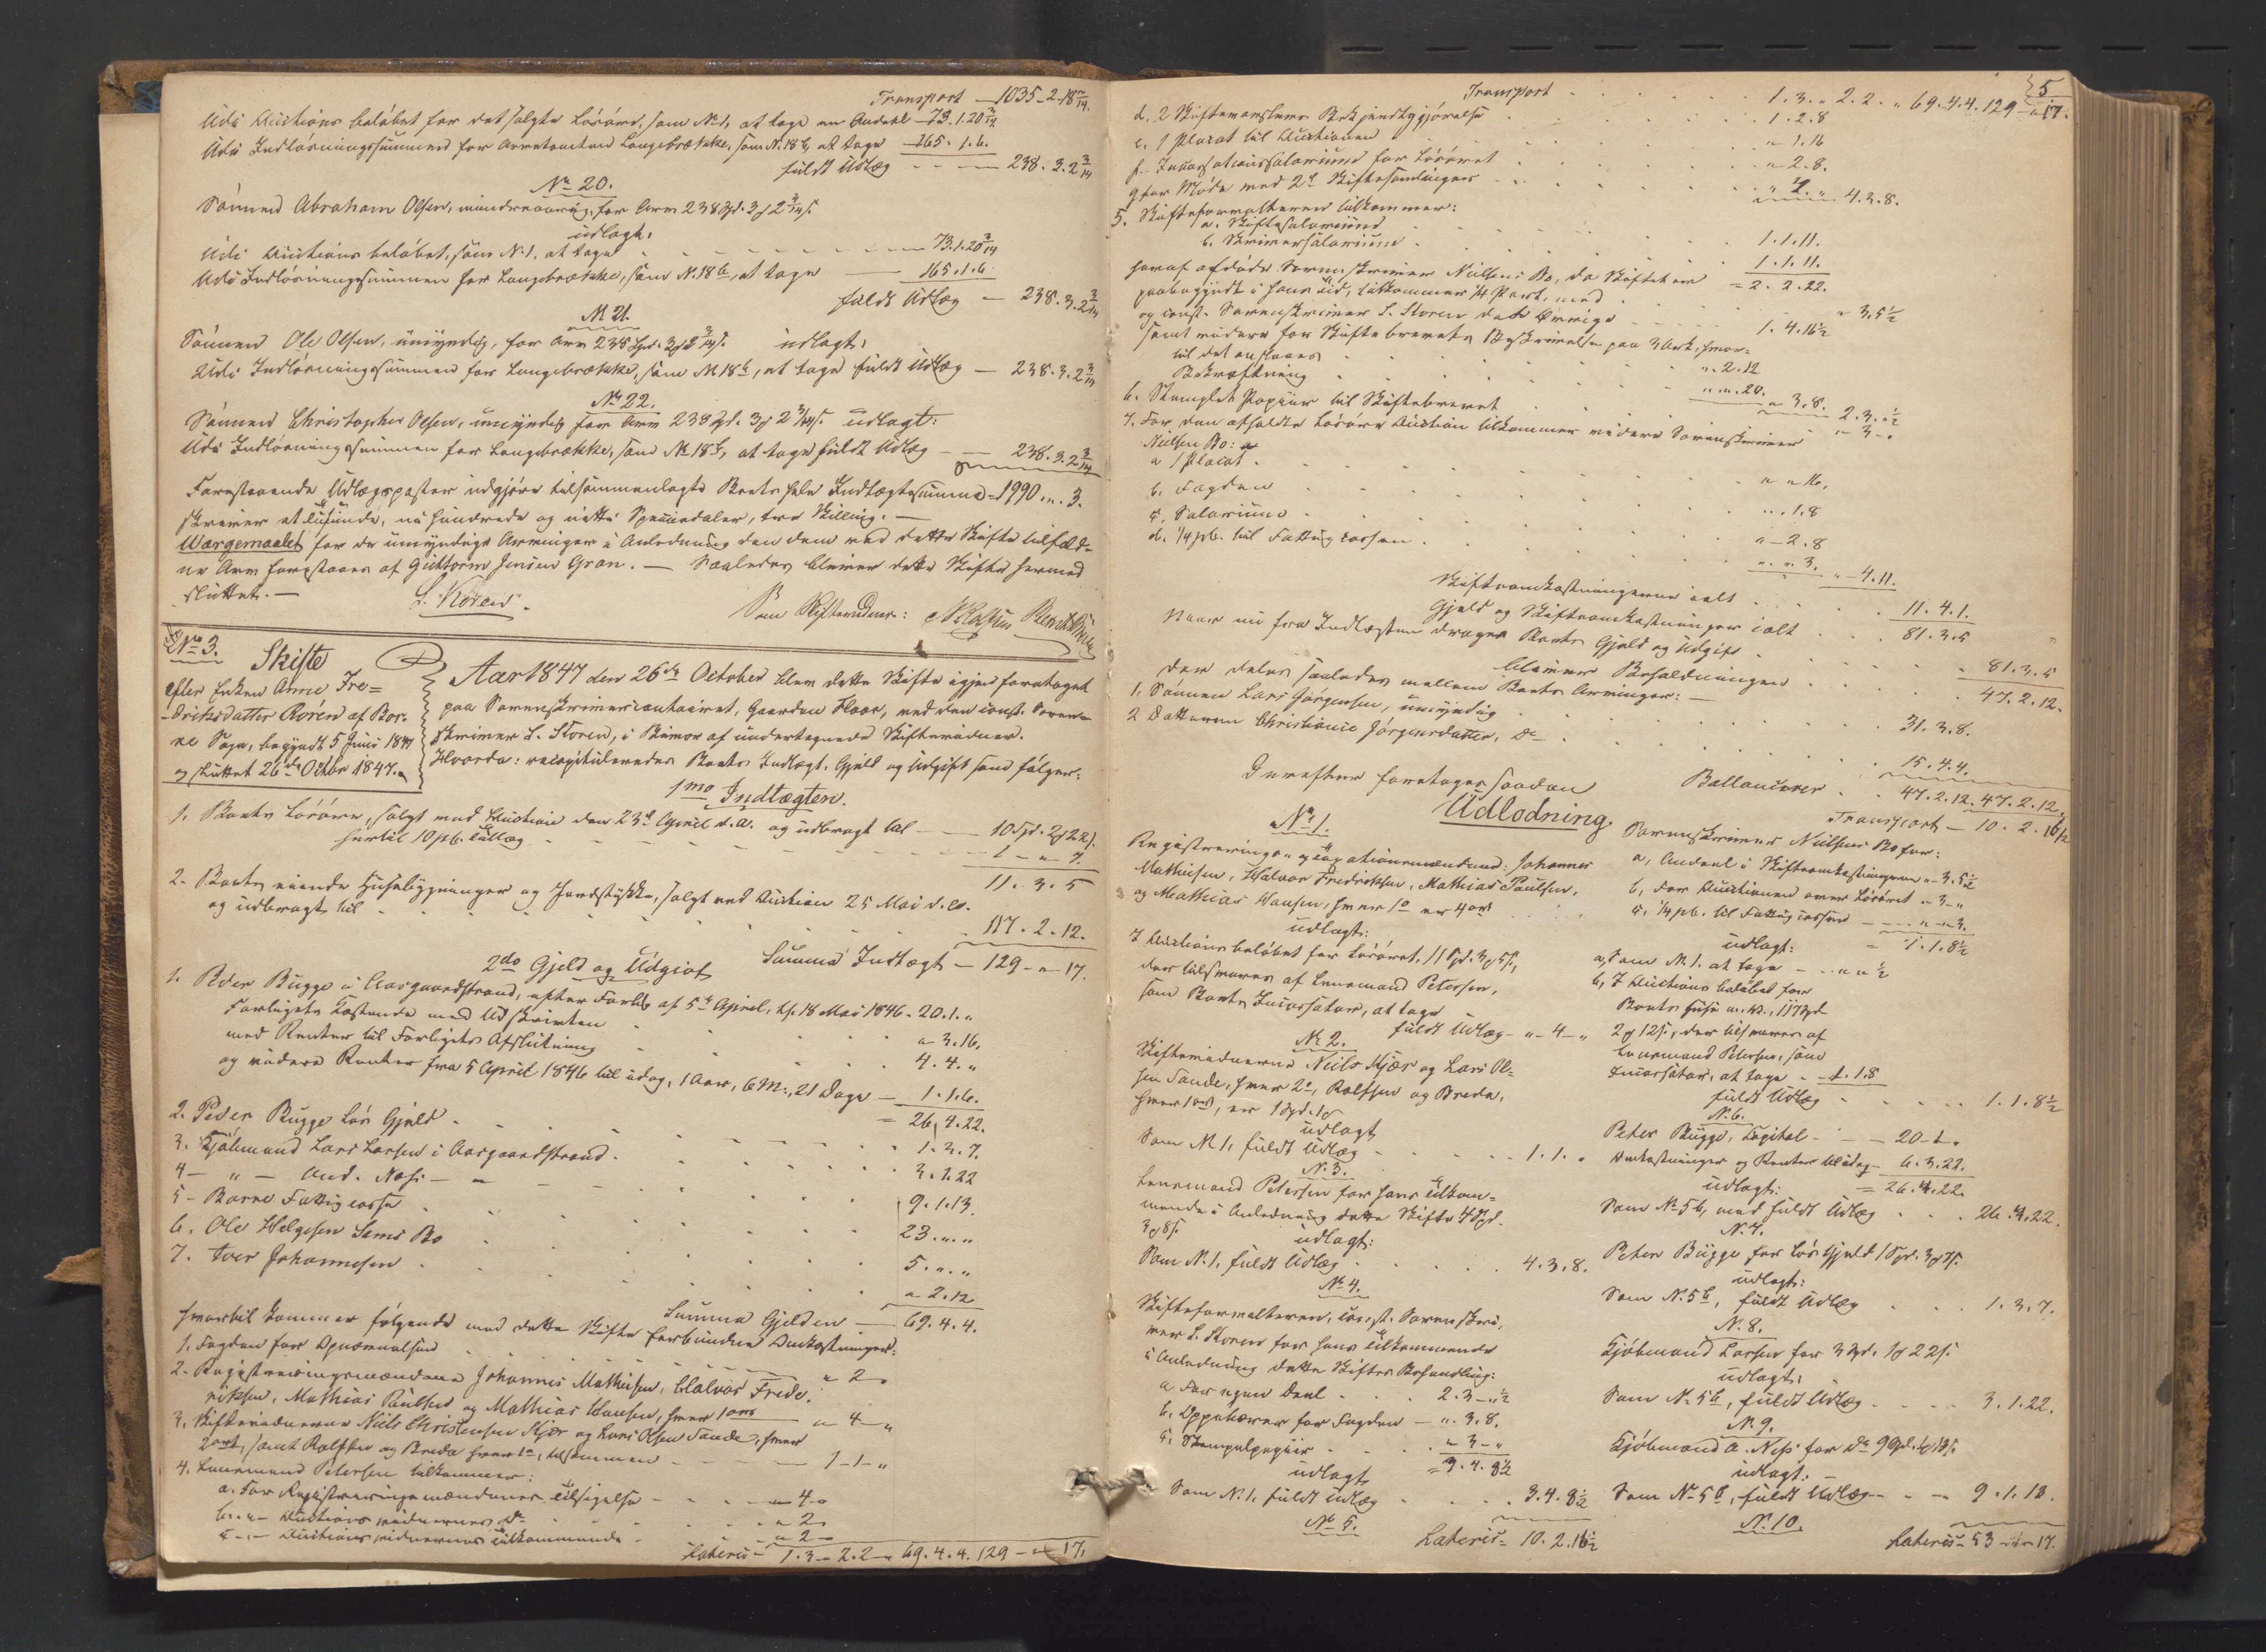 Transport — 1035-2-18 2/14.
Udi Auctions beløbet for det solgte Løsøre, som No 1, at tage en Andeel 73.1.20 3/14
Udi Indløsningssummen for Arvetomten Langebrække, som No 18 b, at tage 165.1.6.
fuldt Udlæg — 238.3.2 3/14
No 20.
Sønnen Abraham Olsen, mindreaarig, for Arv 238 Spd. 3 2 3/14 s.
udlagt:
Udi Auctions beløbet, som No 1, at tage 73.1.20 3/14
Udi Indløsningssummen for Langebrække, som No 18 b, at tage — 165.1.6.
fuldt Udlæg — 238.3.2 3/14
No 21.
Sønnen Ole Olsen, umyndig, for Arv 238 Spd. 3 2 3/14 s. udlagt:
Udi Indløsningssummen for Langebrække, som No 18 b, at tage fuldt Udlæg — 238.3.2 3/14
No 22.
Sønnen Christopher Olsen, umyndig for Arv 238 Spd. 3 2 3/14 s. udlagt:
Udi Indløsningssummen for Langebrække, som No 18 b, at tage fuldt Udlæg — 238.3.2 3/14
Forestaaende Udlægsposter udgjøre tilsammenlagte Boets hele Indtægtssumma = 1990 „ 3.
skriver et tusinde, ni hundrede og nitti Speciedaler, tre Skilling. —
Værgemaalet for de umyndige Arvinger i Anledning den dem ved dette Skifte tilfald-
ne Arv forestaaes af Guttorm Jensen Gran. — Saaledes bliver dette Skifte hermed
sluttet. —
Som Skiftevidner:
No 3. Skifte
efter Enken Anne Fre-
driksdatter Røren af Bor-
re Sogn, begyndt 5 Juni 1847
og sluttet 26de Octbr 1847.
Aar 1847 den 26de October blev dette Skifte igjen foretaget
paa Sorenskrivercontoiret, Gaarden Floor, ved den const. Soren-
skriver L. Storen, i Nærvær af undertegnede Skiftevidner.
Hvorda: recapituleredes Boets Indtægt, Gjæld og Udgift som følger:
1mo Indtægten.
1. Boets Løsøre, solgt ved Auction den 23de April d.A. og udbragt til — 10 Spd. 2 22 s.
hertil 10 pC. tillæg 1 — „ 7.
11. 3. 5
2. Boets eiende Huusbygninger og Jordstykke, solgt ved Auction 25 Mai d.A.
og udbragt til 117. 2. 12.
Summa Indtægt — 129 - „ 17.
2do Gjeld og Udgivt
1. Peder Bugge i Aasgaardstrand, efter Forlig af 5te April, th. 18 Mai 1846. 20. 1. „
Forligets Kostende med Udskrivten „ 3. 16.
med Renter til Forligets Afslutning 4. 4. „
og videre Renter fra 5 April 1846 til idag, 1 Aar, 6 M:, 21 Dage — 1. 1. 6.
= 26. 4. 22.
2. Peder Bugge løs Gjeld 1. 3. 7.
3. Kjøbmand Lars Larsen i Aasgaardstrand. 3. 1. 22
4 — „ — And. Næss — „ — 9. 1. 13.
5 - Borre Fattigcasse 23. „. „
6. Ole Helgesen Sems Bo 5. „. „
7. Iver Johannesen „ 2. 12
Summa Gjelden — 69. 4. 4.
hvortil kommer følgende med dette Skifte forbundne Omkostninger:
1. Fogden for Opnævnelsen „ 2 „
2. Registreringsmændene Johannes Mathisen, Halvor Fred-
riksen, Mathias Paulsen og Mathias Hansen, hver 1 ort „ 4 „
3. Skiftevidnerne Niels Christensen Kjær og Lars Olsen Sande, hver
2 ort, samt Rolfsen og Breda hver 1 o, tilsammen — 1 - 1 - „
4. Lensmand Petersen tilkommer:
a. For Registreringsmændenes tilsigelse — „ 4 „
b. „ - Auctions vidnernes Do „ 2 „
c - „ - Auctions vidnernes tilkommende „ 2 „
Lateris — 1. 3 „ 2. 2 „ 69. 4. 4. 129 - „ 17.
5
Transport 1. 3. „ 2. 2. „ 69. 4. 4. 129 - „ 17.
d. 2 Skiftesamlingers Bekjendtgjørelse 1. 2. 8
e. 1 Placat til Auctionen „ 1. 16
f. Incassationssalarium for Løsøret „ 2. 8.
g for Møde ved 2de Skiftesamlinger „ 2. „ 4. 3. 8.
5. Skifteforvalteren tilkommer:
a. Skiftesalarium 1. 1. 11.
b. Skriversalarium 1. 1. 11.
= 2. 2. 22.
heraf afdøde Sorenskriver Nielsens Bo, da Skiftet er
paabegyndt i hans tid, tilkommer 1/4 Part, med „ 3. 5 1/2
og const. Sorenskriver L. Storen det Øvrige 1. 4. 16 1/2
samt videre for Skiftebrevets Beskrivelse paa 3 Ark, hvor-
til det anstaaes „ 2. 12
Bekræftning „ „ 20.
„ 3. 8. 2. 3. „ 1/2
6. Stemplet Papiir til Skiftebrevet „ 3 „
7. For den afholdte Løsøre Auction tilkommer videre Sorenskriver
Nielsen Bo:
a 1 Placat „ „ 16.
b. Fogden „ 1. 8
c. Salarium „ 2. 8
d. 1/4 pC. til Fattigcassen „ „ 3. „ 4. 11.
Skifteomkostningerne ialt 11. 4. 1.
Gjeld og Skifteomkostninger ialt 81. 3. 5
Naar nu fra Indtægten drages Boets Gjeld og Udgift 81. 3. 5
bliver Beholdningen 47. 2. 12.
der deles saaledes mellem Boets Arvinger: —
1. Sønnen Lars Jørgensen, umyndig 31. 3. 8.
2 Datteren Christiane Jørgensdatter, Do 15. 4. 4.
Ballancerer 47. 2. 12. 47. 2. 12.
Derefter foretages saadan
Udlodning.
No 1.
Registrerings- og Taxationsmændene: Johannes
Mathisen, Halvor Fredriksen, Mathias Paulsen,
og Mathias Hansen, hver 1 o er 4 ort
udlagt:
I Auctionsbeløbet for Løsøret, 11 Spd. 3 5 s.,
der tilsvares af Lensmand Petersen,
som Boets Incassator, at tage
fuldt Udlæg — „ 4 — „
No 2.
Skiftevidnerne Niels Kjær og Lars Ol-
sen Sande, hver 2 o, Rolfsen og Breda,
hver 1 ort, er 1 Spd. 1
udlagt
Som No 1, fuldt Udlæg 1. 1. „
No 3.
Lensmand Petersen for hans tilkom-
mende i Anledning dette Skifte 4 Spd.
3 8 s.
udlagt:
Som No 1, fuldt Udlæg 4. 3. 8.
No 4.
Skifteforvalteren, const. Sorenskri-
ver L. Storen for hans tilkommende
i Anledning dette Skiftes Behandling:
a For egen Deel 2. 3 — „ 1/2
b. Oppebærer for Fogden — „. 3. 8.
c. Stempelpapiir „ 3 — „
= 3. 4. 8 1/2
udlagt
Som No 1, fuldt Udlæg 3. 4. 8 1/2
No 5.
Lateris = 10. 2. 16 1/2
Transport — 10. 2. 16 1/2
Sorenskriver Nielsens Bo for:
a, Andeel i Skifteomkostningerne „ 3. 5 1/2
b, For Auctionen over Løsøret „ 3 — „
c. 1/4 pC. til Fattigcassen — „ „ 3.
= 1. 1. 8 1/2
udlagt:
a, Som No 1. at tage — „ „ 1/2
b, I Auctions beløbet for
Boets Huse m.v., 117 Spd
2 12 s., der tilsvares af
Lensmand Petersen, som
Incassator, at tage — 1. 1. 8
fuldt Udlæg 1. 1. 8 1/2
No 6.
Peter Bugge, Capital — 20 - 1 „
Omkostninger og Renter til idag — 6. 3. 22.
= 26. 4. 22.
udlagt:
Som No 5 b, med fuldt Udlæg 26. 4. 22.
No 7.
Peter Bugge for løs Gjeld 1 Spd. 3 7 s.
udlagt:
Som No 5 b, fuldt Udlæg 1. 3. 7.
No 8.
Kjøbmand Larsen for 3 Spd. 1 22 s.
udlagt:
Som No 5 b, fuldt Udlæg 3. 1. 22.
No 9.
Kjøbmand A. Næss for Do 9 Spd. 1 13 s.
udlagt:
Som No 5 b, fuldt Udlæg 9. 1. 13.
No 10.
Lateris — 53 „ 17.